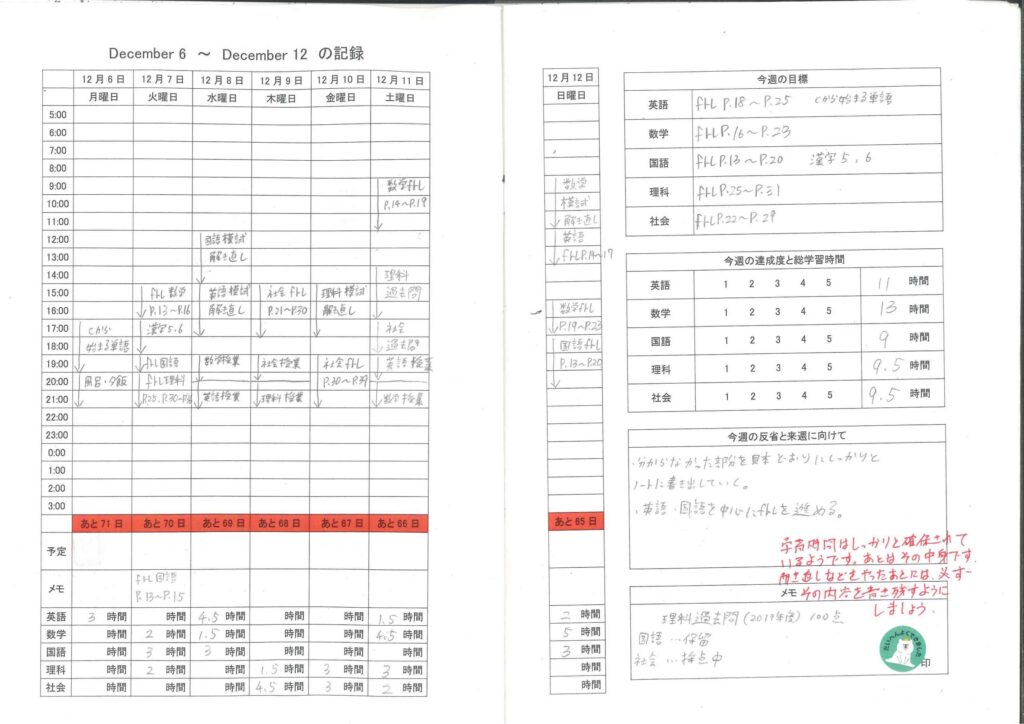 December 6 ～ December 12 の記録
12月6日 12月7日 12月8日 12月9日 12月10日 12月11日
月曜日 火曜日 水曜日 木曜日 金曜日 土曜日
5:00
6:00
7:00
8:00
9:00 数学fトレ
10:00 P.14～P.19
11:00
12:00 国語模試
13:00 解き直し
14:00 理科
15:00 fトレ数学 英語模試 社会fトレ 理科模試 過去問
16:00 P.13～P.16 解き直し P.21～P.30 解き直し
17:00 Cから 漢字5,6 社会
18:00 始まる単語 過去問
19:00 fトレ国語 数学授業 社会授業 社会fトレ 英語授業
20:00 風呂・夕飯 fトレ理科 P.30～P.39
21:00 P.25, P.30～ 英語授業 理科授業 数学授業
22:00
23:00
0:00
1:00
2:00
3:00
あと71日 あと70日 あと69日 あと68日 あと67日 あと66日
予定
メモ fトレ国語
P.13～P.15
英語 3 時間 時間 4.5 時間 時間 時間 1.5 時間
数学 時間 2 時間 1.5 時間 時間 時間 4.5 時間
国語 時間 3 時間 3 時間 時間 時間 時間
理科 時間 2 時間 時間 1.5 時間 3 時間 3 時間
社会 時間 時間 時間 4.5 時間 3 時間 2 時間
12月12日
日曜日
数学
模試
解き直し
英語
fトレP.14～17
数学fトレ
P.19～P.23
国語fトレ
P.13～P.20
あと65日
2 時間
5 時間
3 時間
時間
時間
今週の目標
英語 fトレ P.18～P.25 Cから始まる単語
数学 fトレP.16～P.23
国語 fトレP.13～P.20 漢字5,6
理科 fトレP.25～P.31
社会 fトレP.22～P.29
今週の達成度と総学習時間
英語 1 2 3 4 5 11 時間
数学 1 2 3 4 5 13 時間
国語 1 2 3 4 5 9 時間
理科 1 2 3 4 5 9.5 時間
社会 1 2 3 4 5 9.5 時間
今週の反省と来週に向けて
・分からなかった部分を見本どおりにしっかりと
ノートに書き出していく。
・英語・国語を中心にfトレを進める。
学習時間はしっかりと確保されて
いるようです。あとはその中身です。
解き直しなどをやったあとには、必ず
その内容を書き残すように
しましょう。
メモ
理科過去問(2019年度) 100点
国語…保留
社会…採点中
たいへんよくできました
印